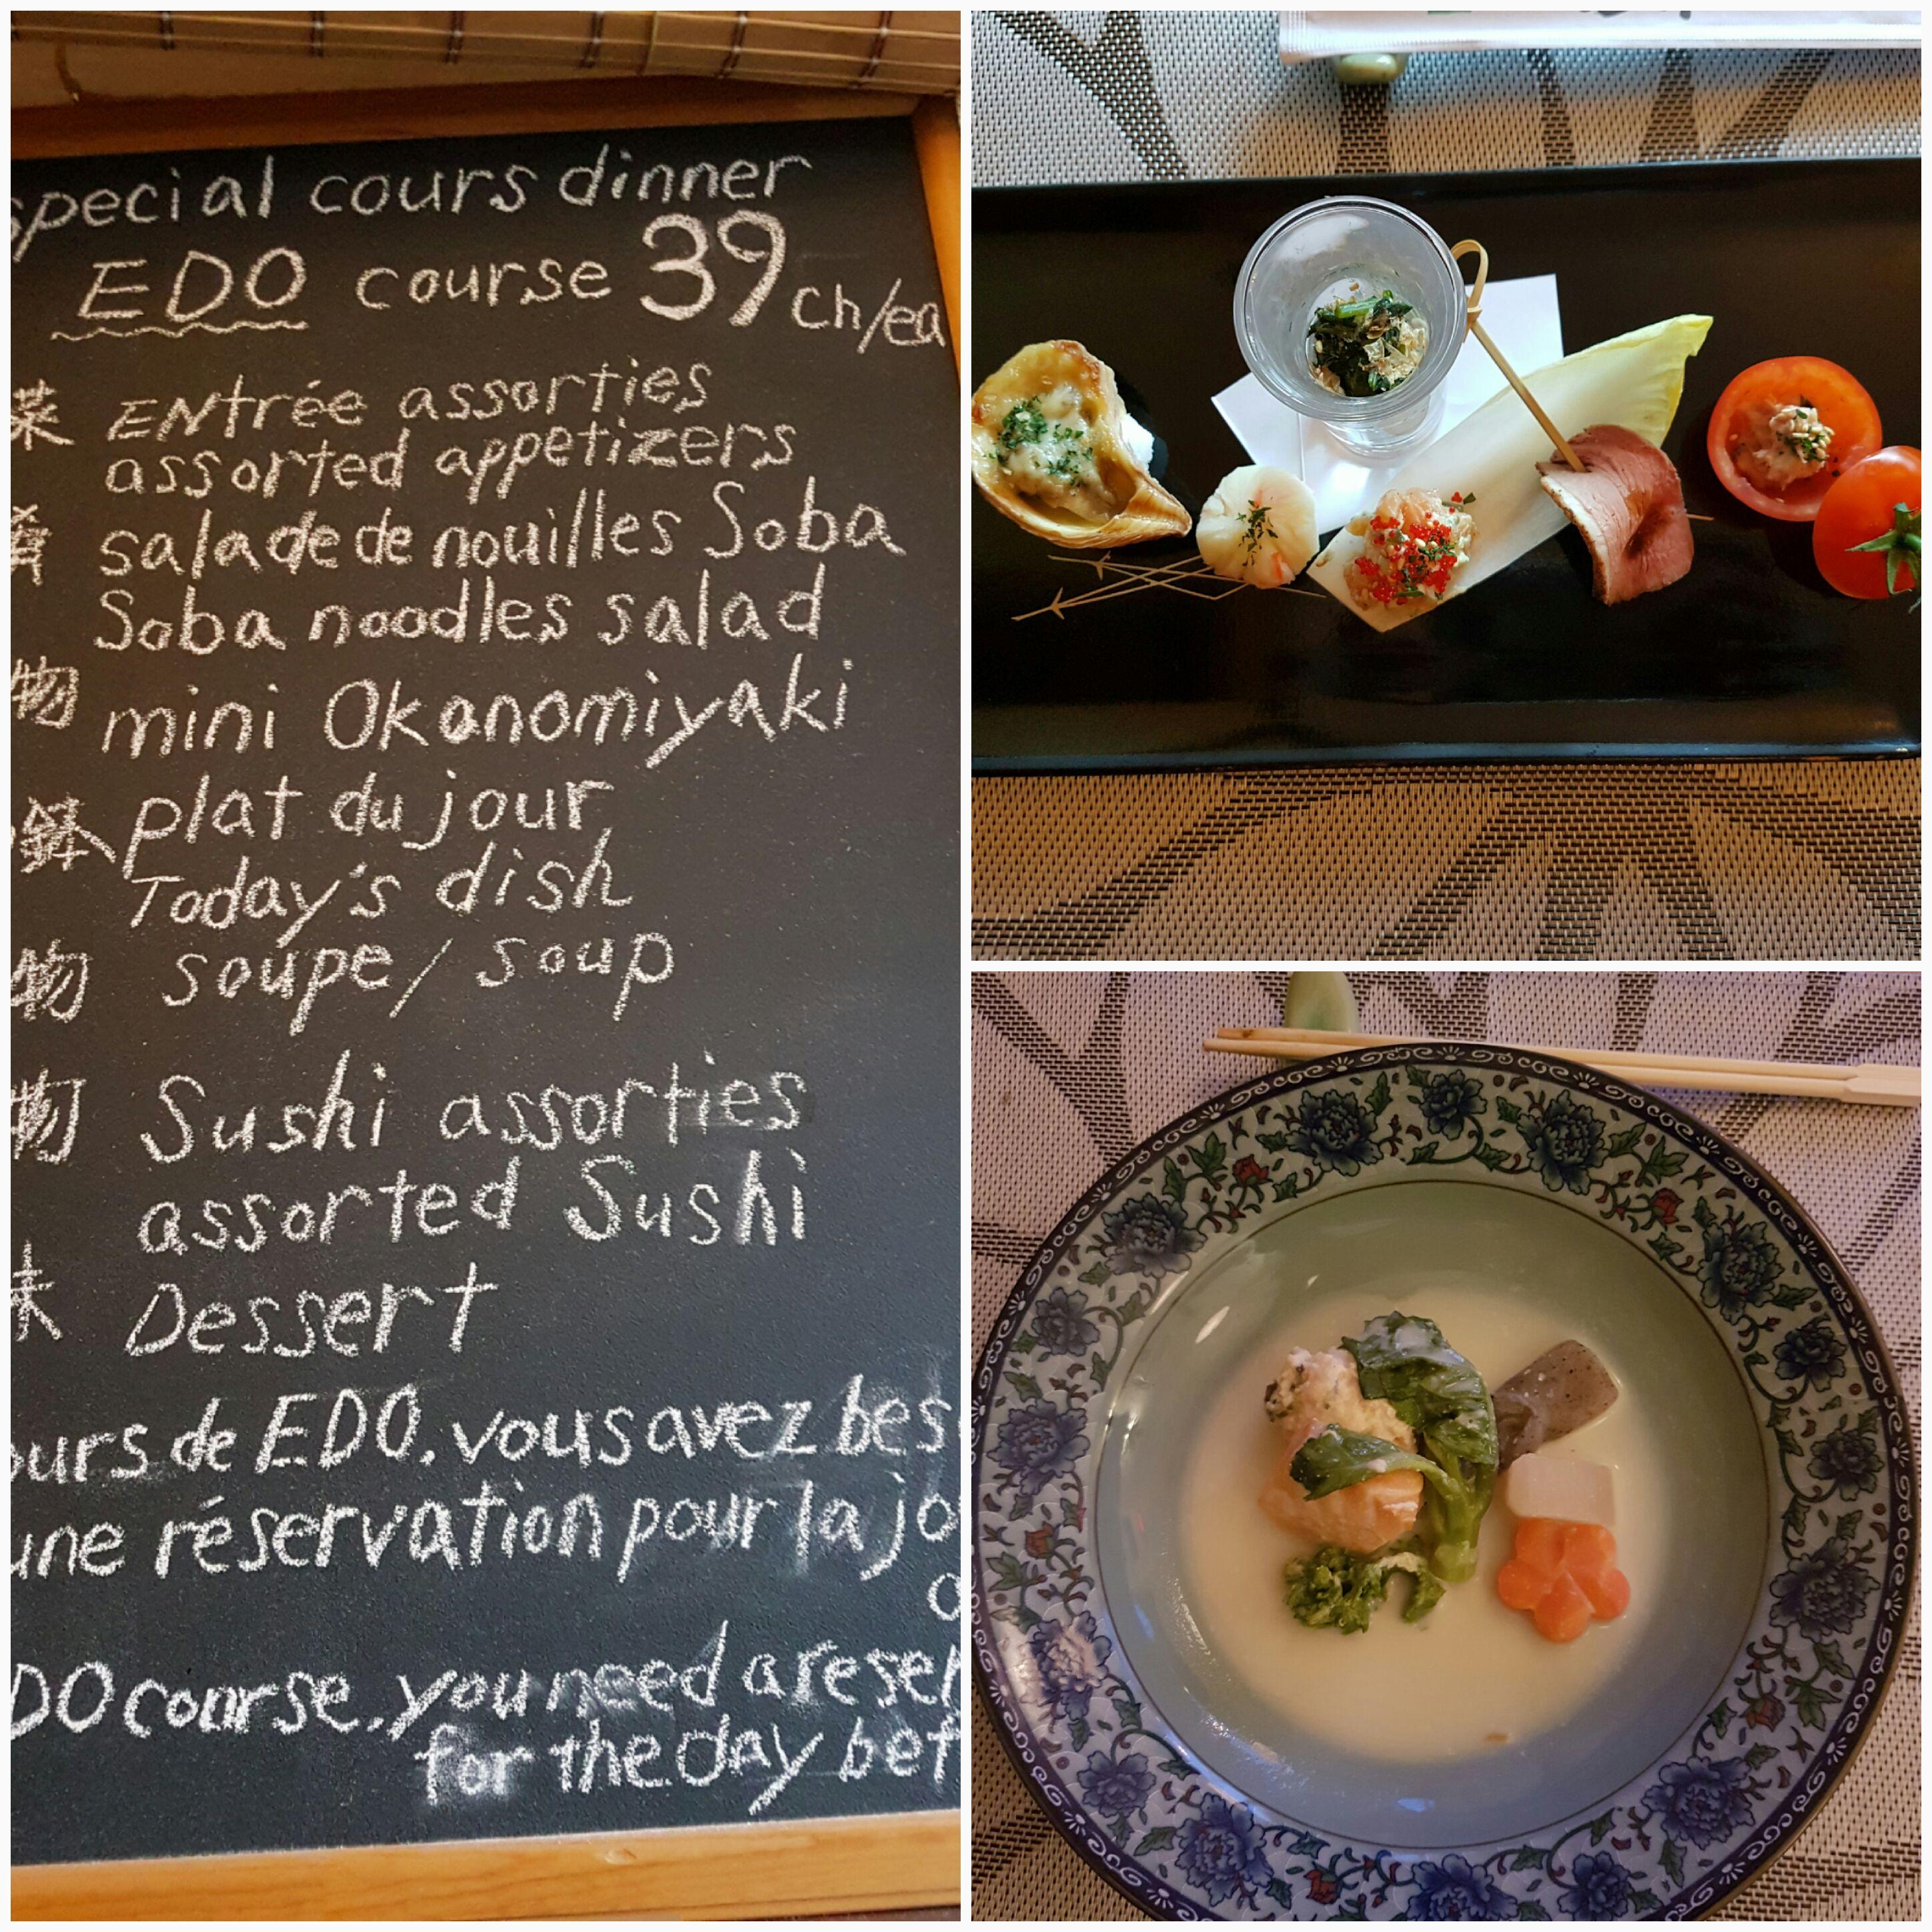 special cours dinner
EDO course 39 ch/ea
菜 ENtrée assorties
assorted appetizers
salade de nouilles Soba
Soba noodles salad
物 mini Okonomiyaki
鉢 plat du jour
Today's dish
物 soupe/ soup
物 Sushi assorties
assorted Sushi
Dessert
ours de EDO. vous avez bes
une réservation pour la jo
DO course. you need a reser
for the day bef